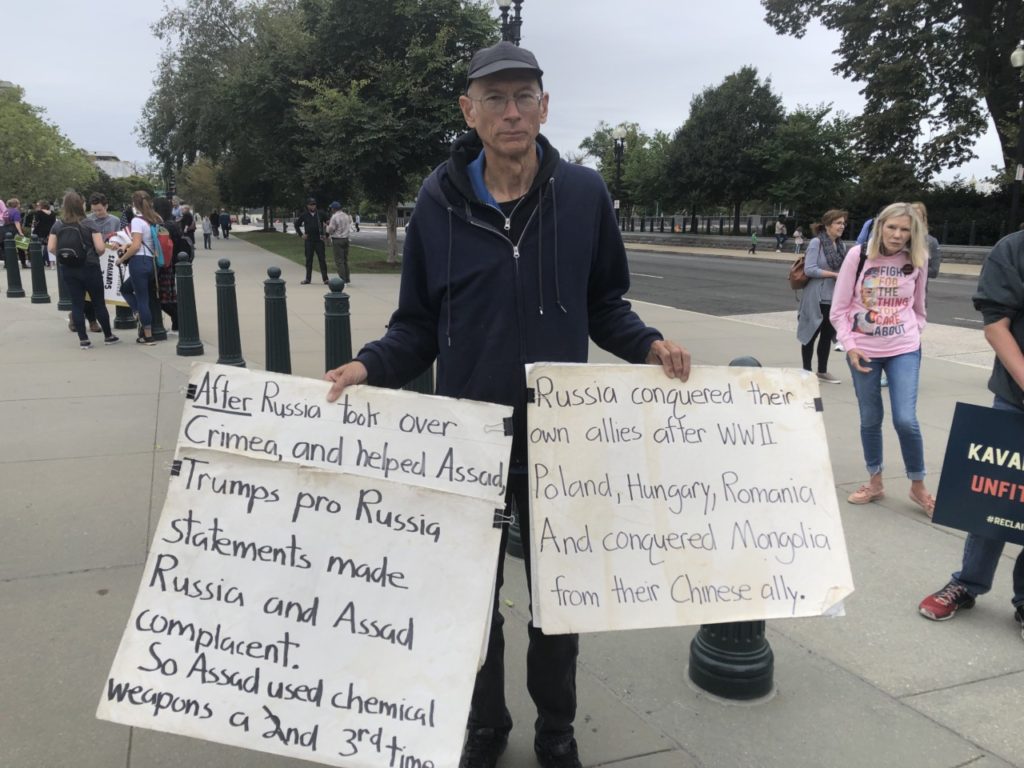 After Russia took over
Crimea, and helped Assad,
Trumps pro Russia
statements made
Russia and Assad
complacent.
So Assad used chemical
weapons a 2nd and 3rd time
Russia conquered their
own allies after WWII
Poland, Hungary, Romania
And conquered Mongolia
from their Chinese ally.
FIGHT
FOR THE
THINGS
YOU
CARE
ABOUT
KAVA
UNFIT
#RECLAI